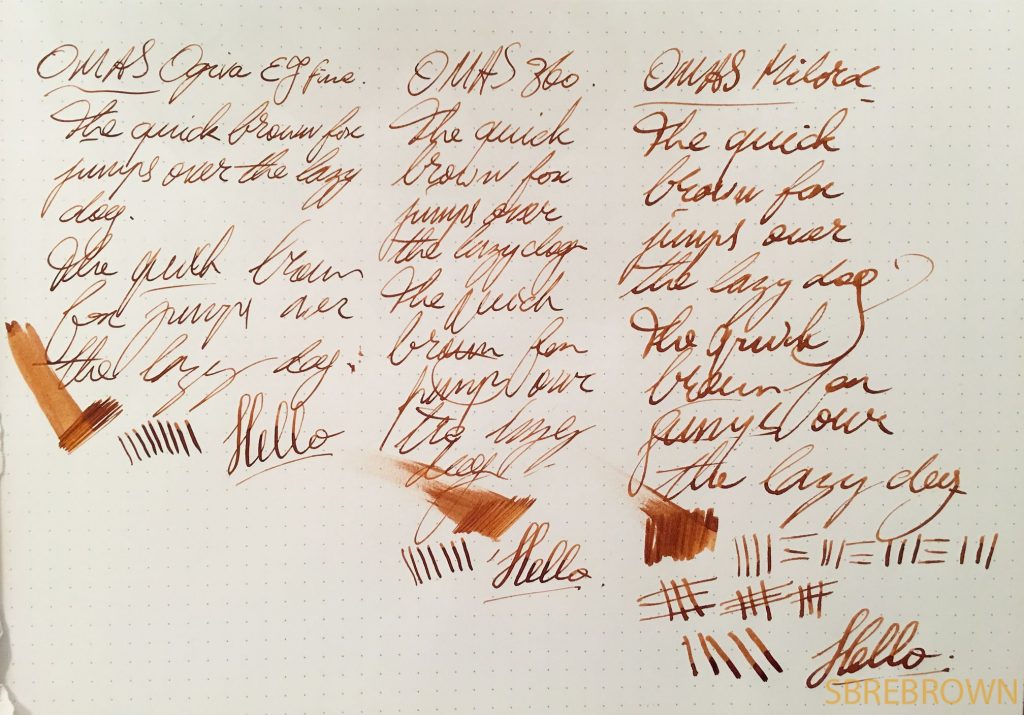 OMAS Ogiva EF fine.
The quick brown fox
jumps over the lazy
dog.
The quick brown
fox jumps over
the lazy dog.
Hello
OMAS 360.
The quick
brown fox
jumps over
the lazy dog
The quick
brown fox
jumps over
the lazy
dog
Hello.
OMAS Milord
The quick
brown fox
jumps over
the lazy dog
The quick
brown fox
jumps over
the lazy dog
Hello.
SBREBROWN